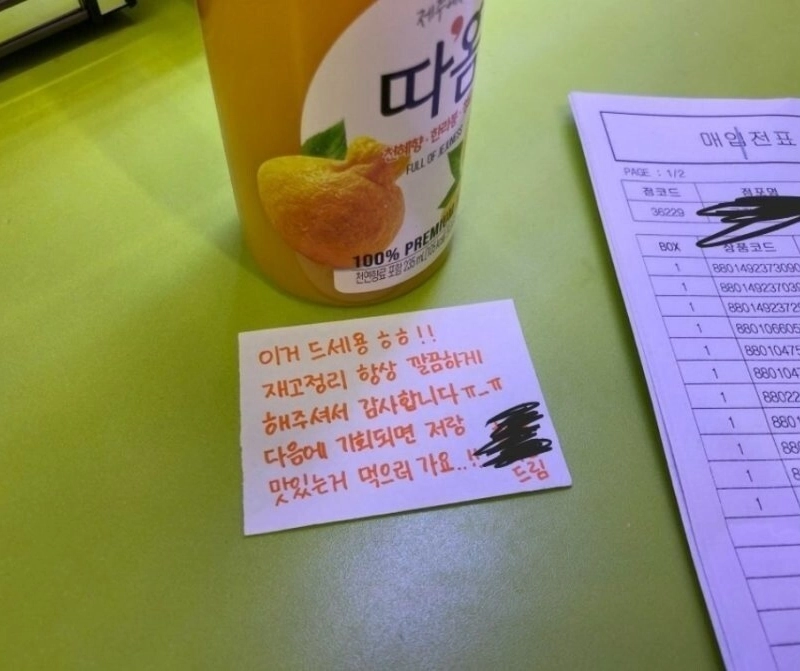 따옴
천혜향·한라봉
FULL OF JEJUNESS
100% PREMIUM
천연향료 포함 235 mL
이거 드세용 ㅎㅎ!!
재고정리 항상 깔끔하게
해주셔서 감사합니다ㅠ_ㅠ
다음에 기회되면 저랑
맛있는거 먹으러 가요..!!
드림
매입전표
PAGE : 1/2
점코드 점포명
36229
BOX 상품코드
1 8801492373090
1 880149237039
1 88014923729
1 880106605
1 88010475
1 8801047
1 88022
1 8801
1 880
1 88
1 8